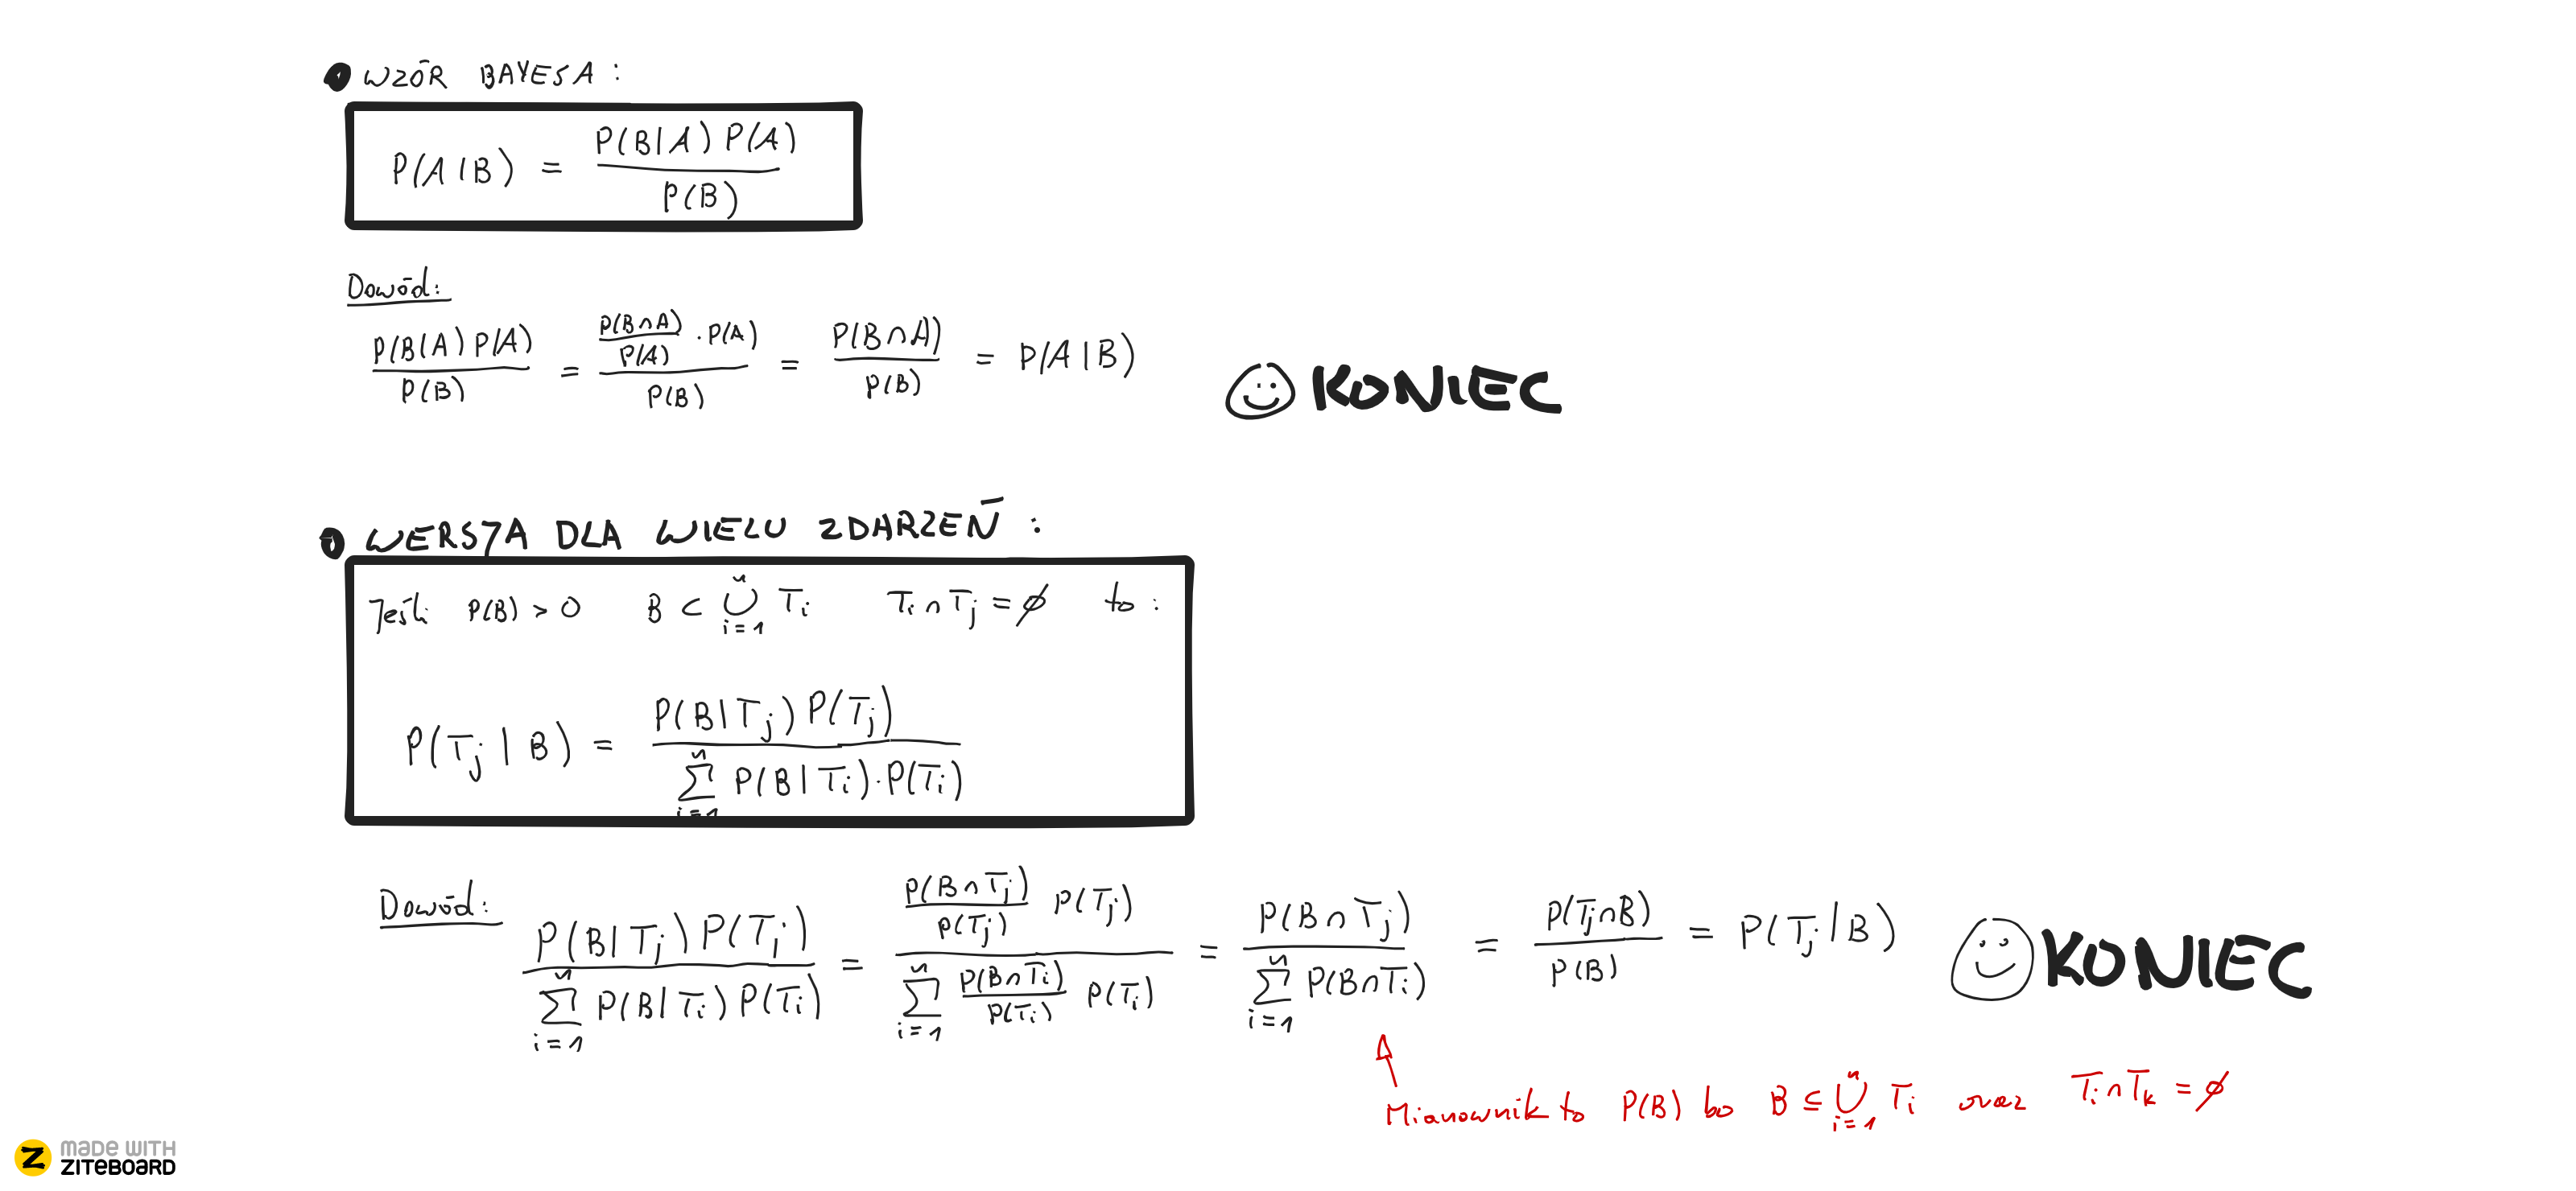 WZÓR BAYESA :
P(A|B) = P(B|A) P(A) / P(B)
Dowód:
P(B|A) P(A) / P(B) = P(B∩A) / P(A) · P(A) / P(B) = P(B∩A) / P(B) = P(A|B) KONIEC
WERSJA DLA WIELU ZDARZEŃ :
Jeśli P(B) > 0 B ⊂ ⋃_{i=1}^{n} T_i T_i ∩ T_j = ∅ to :
P(T_j | B) = P(B|T_j) P(T_j) / ∑_{i=1}^{n} P(B|T_i) · P(T_i)
Dowód:
P(B|T_j) P(T_j) / ∑_{i=1}^{n} P(B|T_i) P(T_i) = P(B∩T_j) / P(T_j) P(T_j) / ∑_{i=1}^{n} P(B∩T_i) / P(T_i) P(T_i) = P(B∩T_j) / ∑_{i=1}^{n} P(B∩T_i) = P(T_j∩B) / P(B) = P(T_j|B) KONIEC
Mianownik to P(B) bo B ⊆ ⋃_{i=1}^{n} T_i oraz T_i ∩ T_k = ∅
MADE WITH
ZITEBOARD